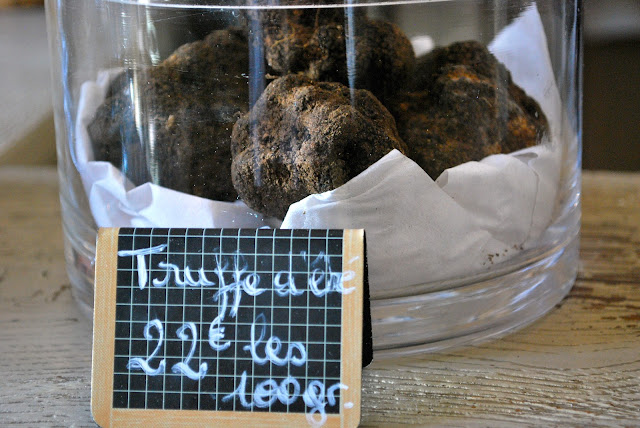 Truffe d'été
22€ les
100gr.